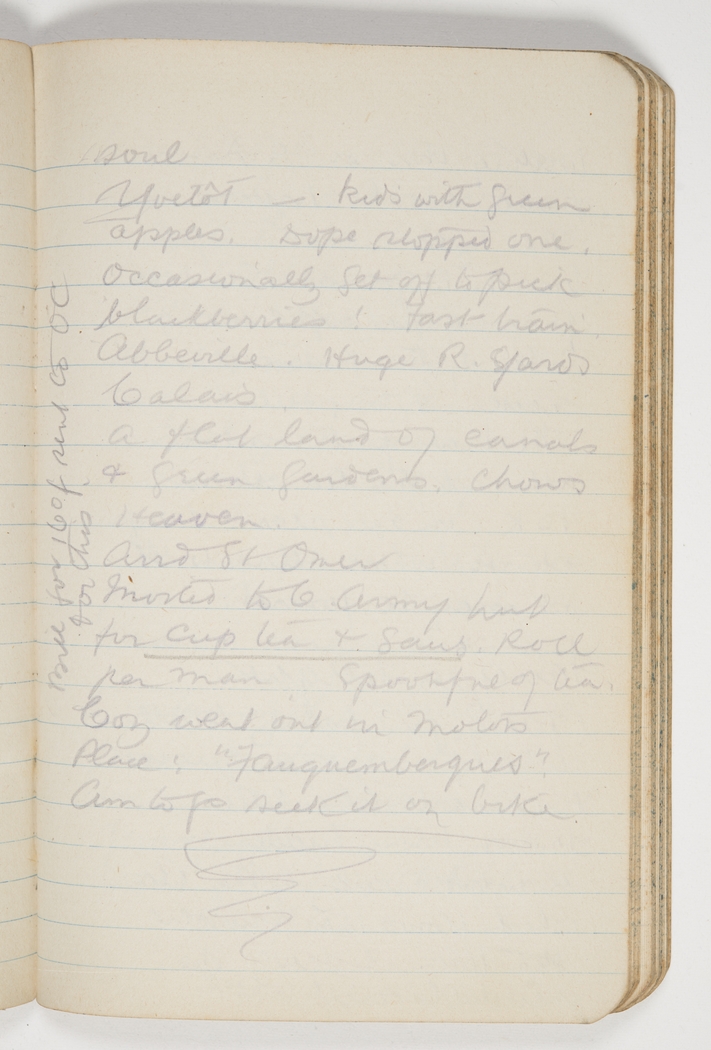 soul
Yvetôt — kids with green
apples. Dope stopped one.
Occasionally get off to pick
blackberries! Fast train
Abbeville. Huge R. Yards
Calais
A flat land of canals
& green gardens. Chows
Heaven.
Arrd St Omer
Motored to Army hut
for cup tea & Saus. Roll
per man Spoonfne of tea.
Coy went out in Motors
Place: "Fauquembergues"
Am to go seek it on bike
Bill for 160f sent to OC
for this